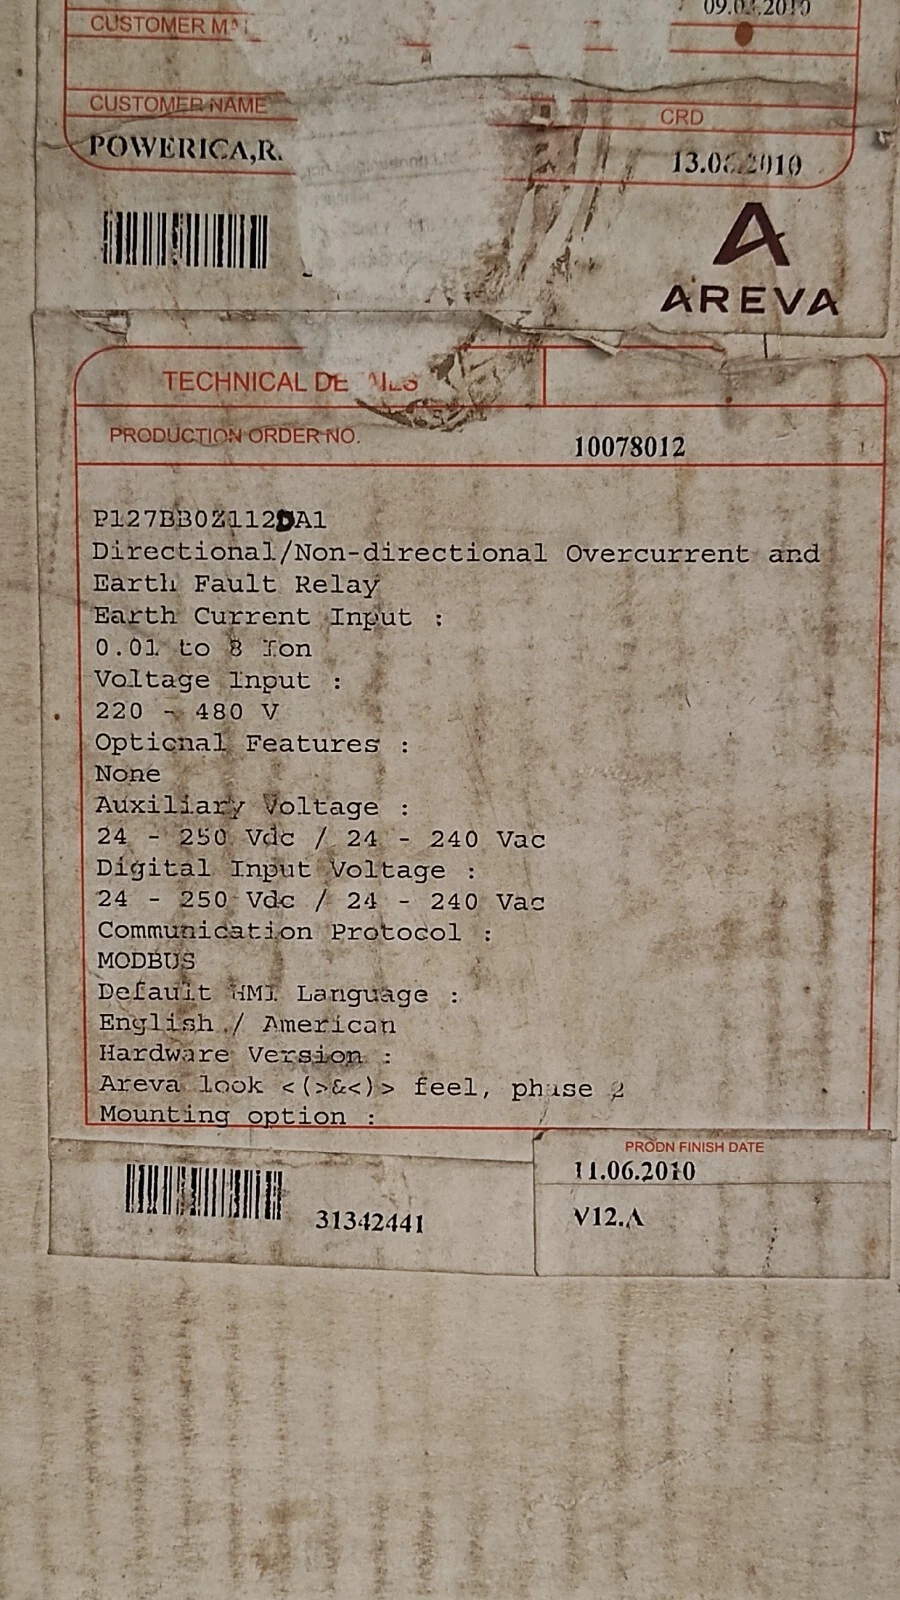 CUSTOMER
CUSTOMER NAME
CRD
POWERICA,R.
13.06.2010
AREVA
TECHNICAL DETAILS
PRODUCTION ORDER NO.
10078012
P127BB0Z112DA1
Directional/Non-directional Overcurrent and
Earth Fault Relay
Earth Current Input :
0.01 to 8 Ion
Voltage Input :
220 - 480 V
Optional Features :
None
Auxiliary Voltage :
24 - 250 Vdc / 24 - 240 Vac
Digital Input Voltage :
24 - 250 Vdc / 24 - 240 Vac
Communication Protocol :
MODBUS
Default HMI Language :
English / American
Hardware Version :
Areva look <(>&<)> feel, phase 2
Mounting option :
PRODN FINISH DATE
11.06.2010
31342441
V12.A